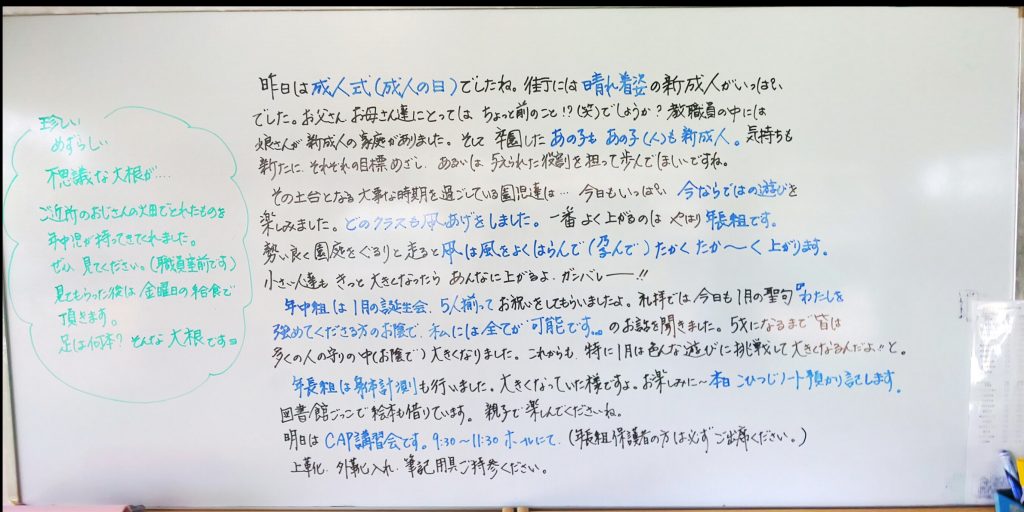 珍しい
めずらしい
不思議な大根が…
ご近所のおじさんの畑でとれたものを
年中児が持ってきてくれました。
ぜひ 見てください。(職員室前です)
見てもらった後は 金曜日の給食で
頂きます。
足は何本? そんな大根です
昨日は 成人式(成人の日)でしたね。街には 晴れ着姿の新成人がいっぱい
でした。お父さん お母さん達にとっては ちょっと前のこと!?(笑)でしょうか? 教職員の中には
娘さんが 新成人の家庭がありました。そして 卒園した あの子も あの子(人)も新成人。気持ちも
新たに それぞれの目標めざし、あるいは 与えられた役割を担って歩んでほしいですね。
その土台となる 大事な時期を過ごしている園児達は… 今日もいっぱい 今ならではの遊びを
楽しみました。どのクラスも凧あげをしました。一番よく上がるのは やはり年長組です。
勢い良く園庭をぐるりと走ると 凧は風をよくはらんで(孕んで)たかくたか〜く上がります。
小さい人達も きっと 大きくなったら あんなに上がるよ。ガンバレー!!
年中組は 1月の誕生会。5人揃って お祝いをしてもらいましたよ。礼拝では 今日も 1月の聖句『わたしを
強めてくださる方のお陰で、私には全てが可能です。』のお話を聞きました。5才になるまで 皆は
多くの人の守りの中(お陰で)大きくなりました。これからも、特に1月は色んな遊びに挑戦して大きくなるんだよ!!と。
年長組は身体計測も行いました。大きくなっていた様ですよ。お楽しみに〜本日 こひつじノート預かり記します。
図書館ごっこで絵本も借りています。親子で楽しんでくださいね。
明日は CAP講習会です。9:30〜11:30 ホールにて、(年長組保護者の方は必ずご出席ください。)
上靴、外靴入れ、筆記用具ご持参ください。